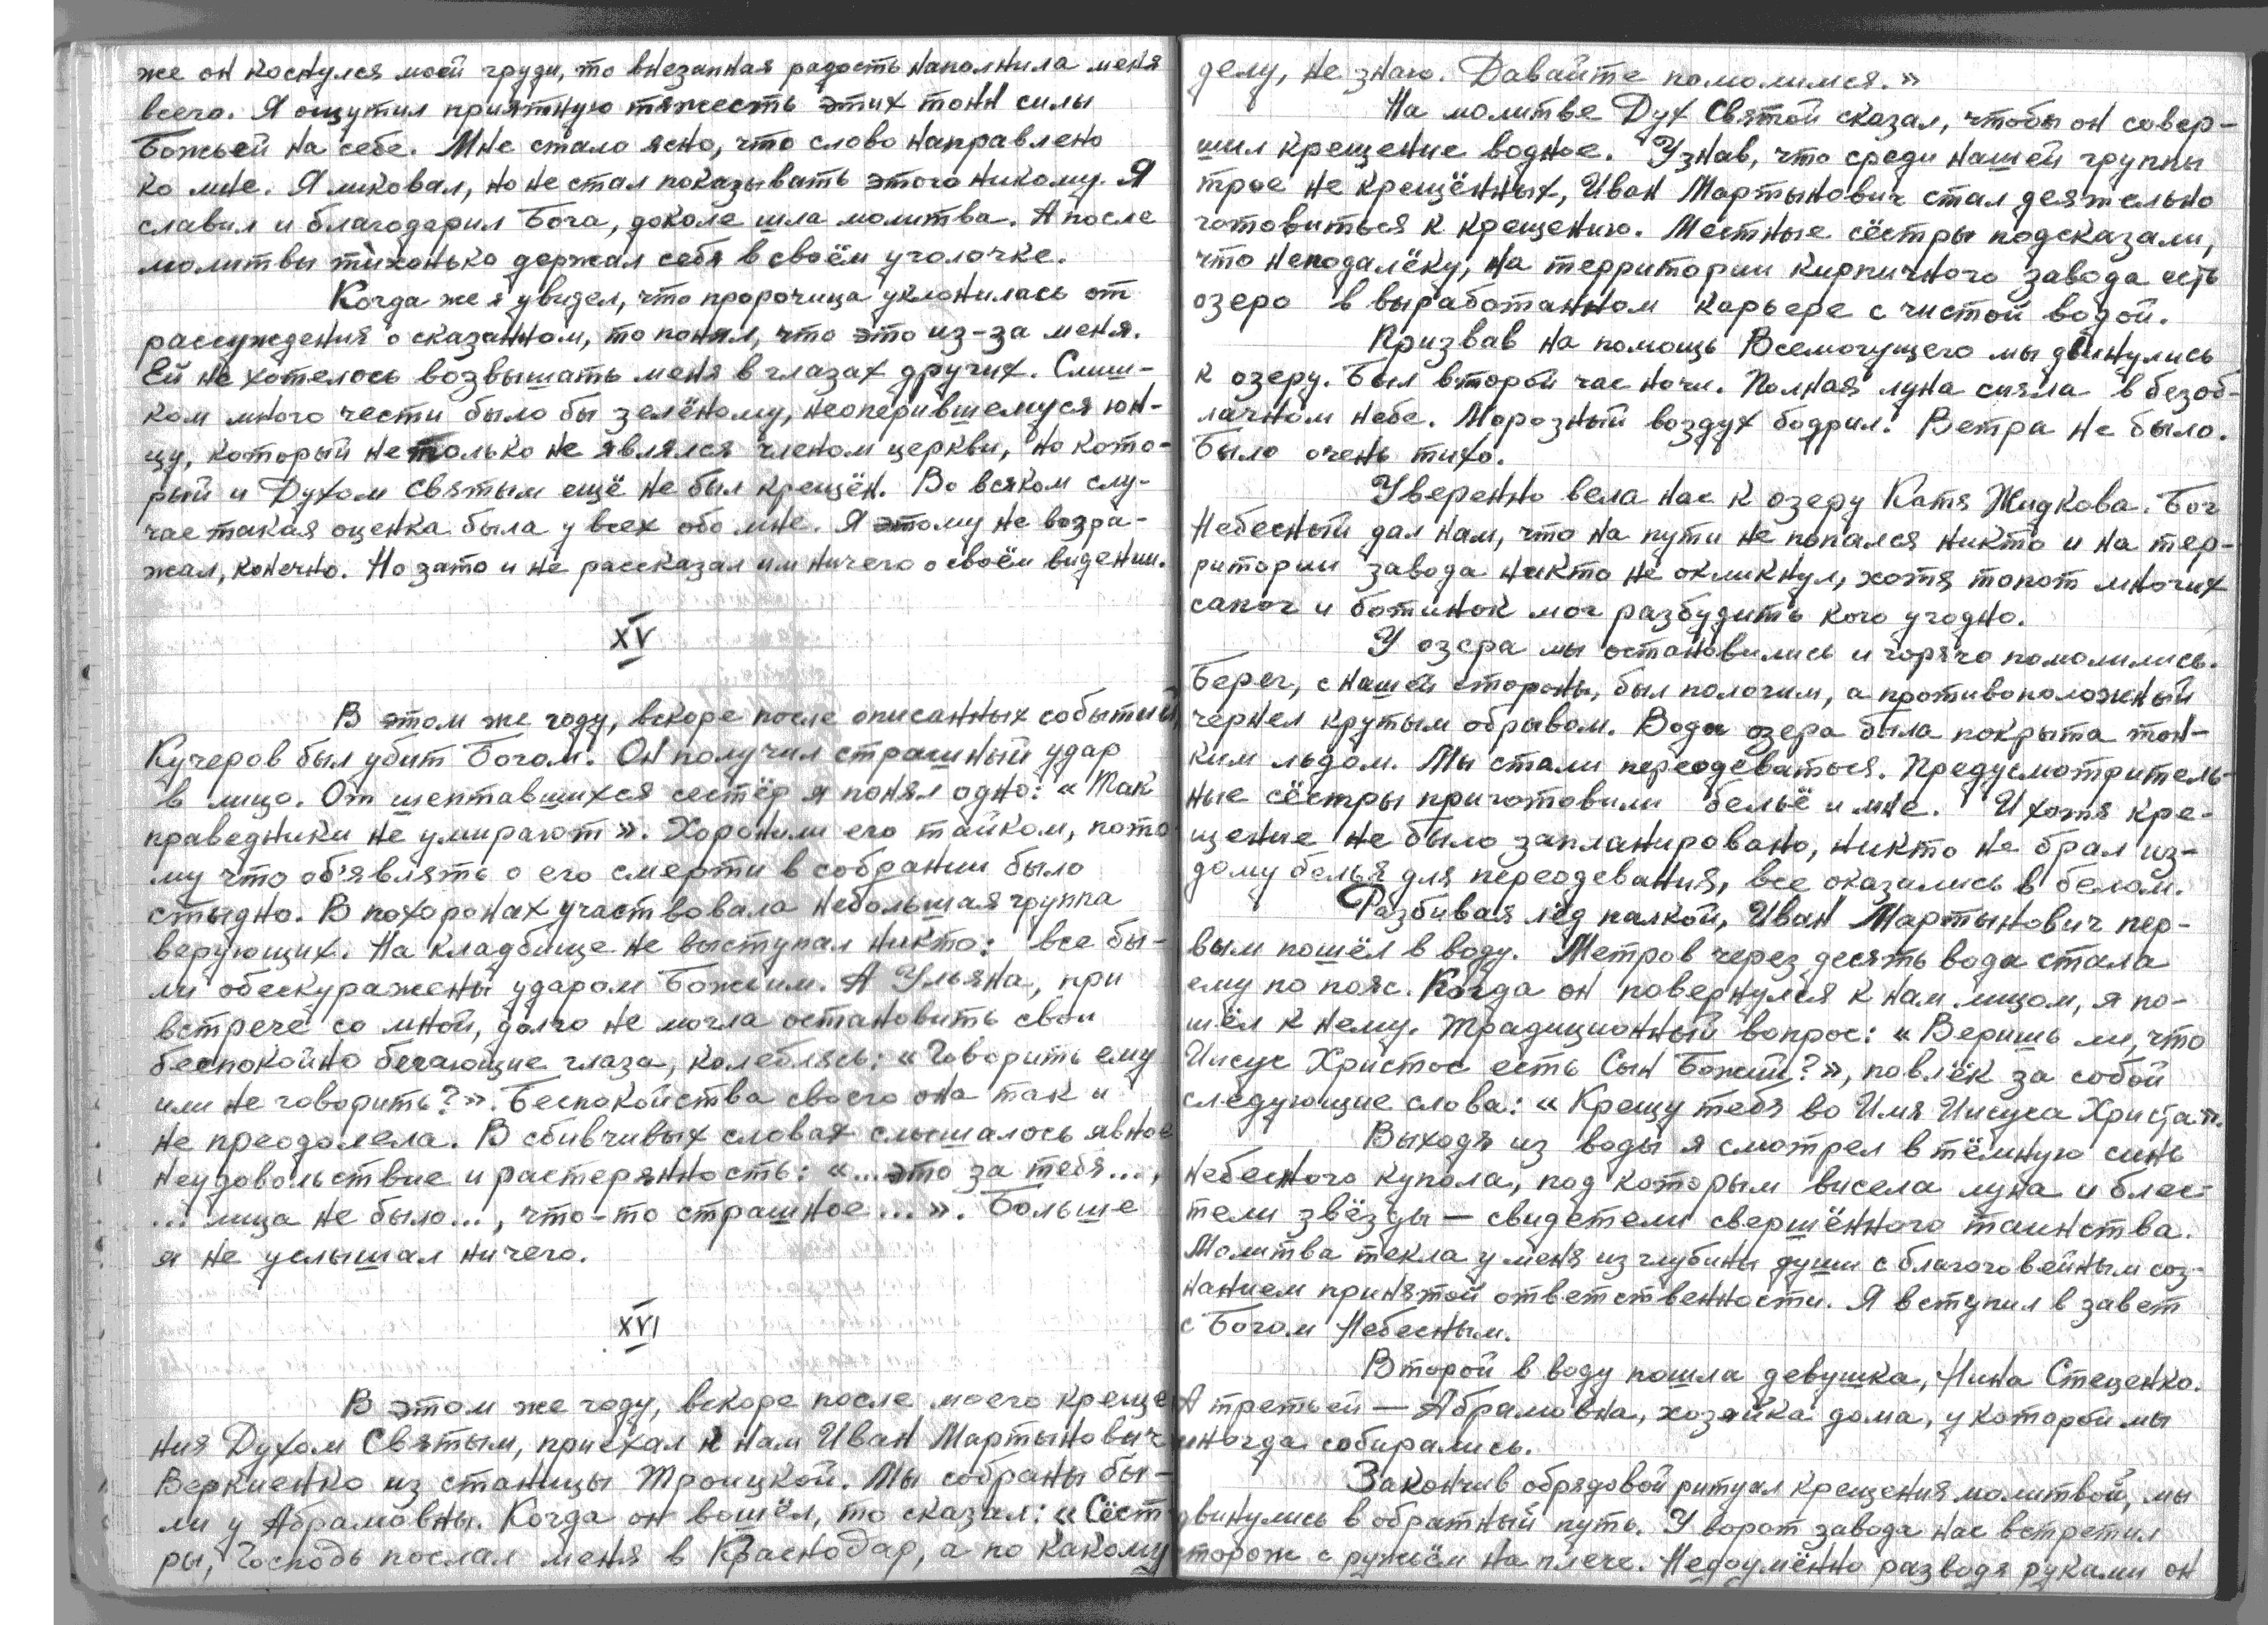 же он коснулся моей груди, то внезапная радость наполнила меня
всего. Я ощутил приятную тяжесть этих тонн силы
Божьей на себе. Мне стало ясно, что слово направлено
ко мне. Я ликовал, но не стал показывать этого никому. Я
славил и благодарил Бога, доколе шла молитва. А после
молитвы тихонько держал себя в своём уголочке.
Когда же я увидел, что пророчица уклонилась от
рассуждения о сказанном, то понял, что это из-за меня.
Ей не хотелось возвышать меня в глазах других. Слиш-
ком много чести было бы зелёному, неоперившемуся юн-
цу, который не только не являлся членом церкви, но кото-
рый и Духом Святым ещё не был крещён. Во всяком слу-
чае такая оценка была у всех обо мне. Я этому не возра-
жал, конечно. Но зато и не рассказал им ничего о своём видении.
XV
В этом же году, вскоре после описанных событий,
Кучеров был убит Богом. Он получил страшный удар
в лицо. От шептавшихся сестёр я понял одно: «Так
праведники не умирают». Хоронили его тайком, пото-
му что об'являть о его смерти в собрании было
стыдно. В похоронах участвовала небольшая группа
верующих. На кладбище не выступал никто: все бы-
ли обескуражены ударом Божиим. А Ульяна, при
встрече со мной, долго не могла остановить свои
беспокойно бегающие глаза, колеблясь: «Говорить ему
или не говорить?». Беспокойства своего она так и
не преодолела. В сбивчивых словах слышалось явное
неудовольствие и растерянность: «...это за тебя...,
... лица не было..., что-то страшное...». Больше
я не услышал ничего.
XVI
В этом же году, вскоре после моего креще
ния Духом Святым, приехал к нам Иван Мартынович
Веркиенко из станицы Троицкой. Мы собраны бы-
ли у Абрамовны. Когда он вошёл, то сказал: «Сёст-
ры, Господь послал меня в Краснодар, а по какому
делу, не знаю. Давайте помолимся.»
На молитве Дух Святой сказал, чтобы он совер-
шил крещение водное. Узнав, что среди нашей группы
трое не крещённых, Иван Мартынович стал деятельно
готовиться к крещению. Местные сёстры подсказали,
что неподалёку, на территории кирпичного завода есть
озеро в выработанном карьере с чистой водой.
Призвав на помощь Всемогущего мы двинулись
к озеру. Был второй час ночи. Полная луна сияла в безоб-
лачном небе. Морозный воздух бодрил. Ветра не было.
Было очень тихо.
Уверенно вела нас к озеру Катя Жидкова. Бог
Небесный дал нам, что на пути не попался никто и на тер-
ритории завода никто не окликнул, хотя топот многих
сапог и ботинок мог разбудить кого угодно.
У озера мы остановились и горячо помолились.
Берег, с нашей стороны, был пологим, а противоположный
чернел крутым обрывом. Вода озера была покрыта тон-
ким льдом. Мы стали переодеваться. Предусмотритель-
ные сёстры приготовили бельё и мне. И хотя кре-
щение не было запланировано, никто не брал из-
дому белья для переодевания, все оказались в белом.
Разбивая лёд палкой, Иван Мартынович пер-
вым пошёл в воду. Метров через десять вода стала
ему по пояс. Когда он повернулся к нам лицом, я по-
шёл к нему. Традиционный вопрос: «Веришь ли, что
Иисус Христос есть Сын Божий?», повлёк за собой
следующие слова: «Крещу тебя во Имя Иисуса Христа».
Выходя из воды я смотрел в тёмную синь
небесного купола, под которым висела луна и блес-
тели звёзды — свидетели свершённого таинства.
Молитва текла у меня из глубины души с благоговейным соз-
нанием принятой ответственности. Я вступил в завет
с Богом Небесным.
Второй в воду пошла девушка, Нина Стеценко.
А третьей — Абрамовна, хозяйка дома, у которой мы
иногда собирались.
Закончив обрядовой ритуал крещения молитвой, мы
двинулись в обратный путь. У ворот завода нас встретил
сторож с ружьём на плече. Недоумённо разводя руками он